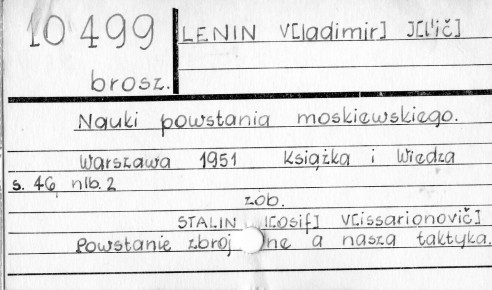 10 499
LENIN V[ladimir] J[l'ič]
brosz.
Nauki powstania moskiewskiego.
Warszawa 1951 Książka i Wiedza
s. 46 nlb. 2
zob.
STALIN I[osif] V[issarionovič]
Powstanie zbroj ne a nasza taktyka.